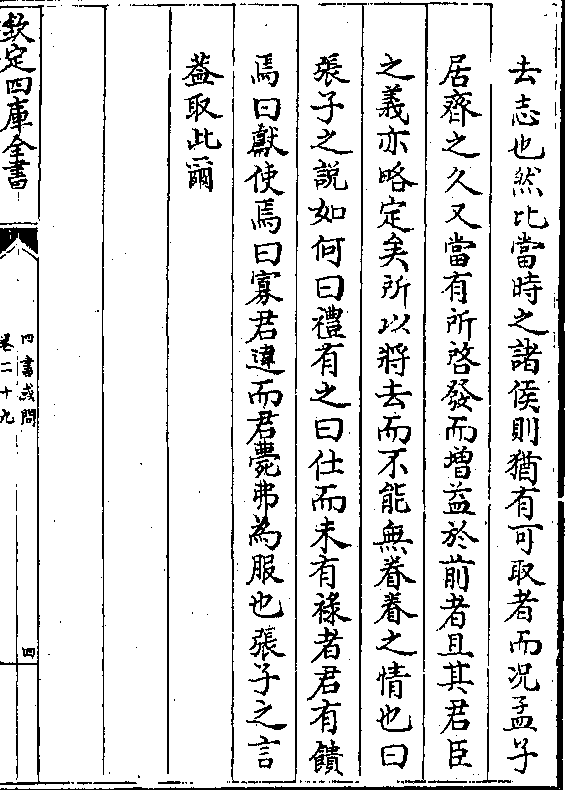 去志也然比當時之諸侯則猶有可取者而况孟子
居齊之久又當有所啓發而增益於前者且其君臣
之義亦略定矣所以將去而不能無眷眷之情也曰
張子之說如何曰禮有之曰仕而未有祿者君有饋
焉曰獻使焉曰寡君違而君薨弗為服也張子之言
葢取此爾
欽定四庫全書
四書或問
卷二十九
四